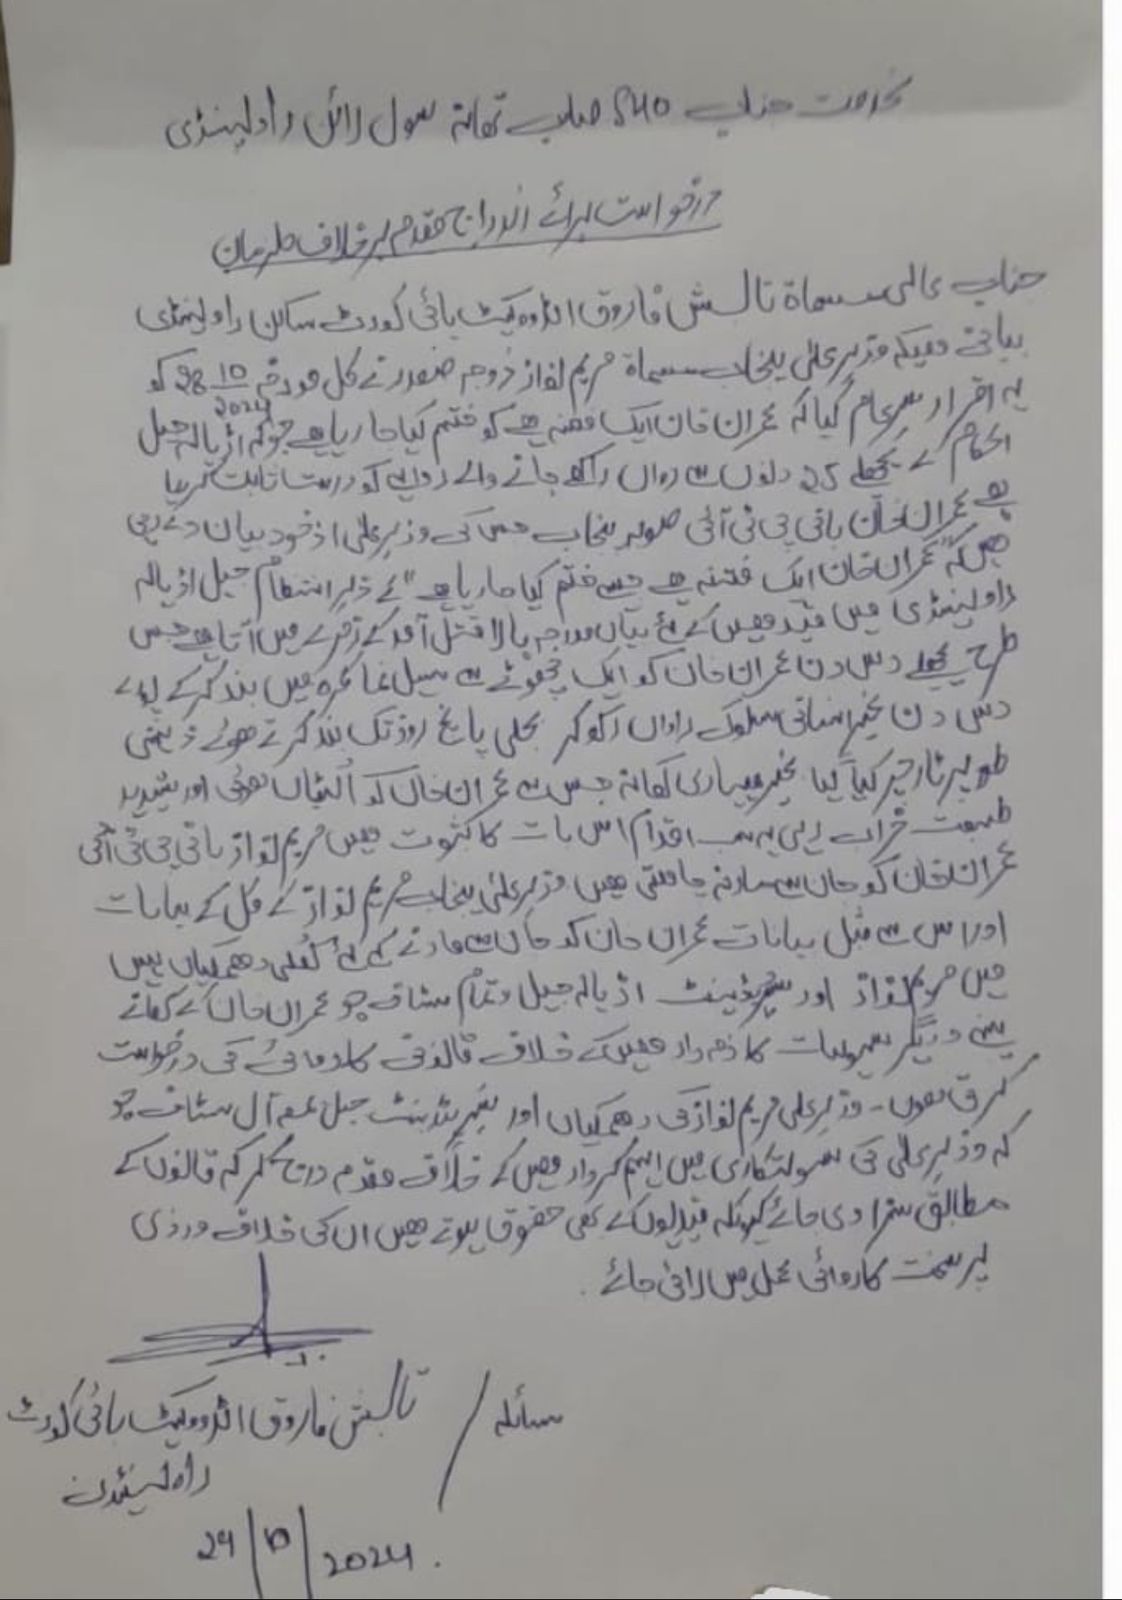 بخدمت جناب SHO صاحب تھانہ سول لائن راولپنڈی
درخواست برائے اندراج مقدمہ برخلاف ملزمان
جناب عالی مسماة تابش فاروق ایڈووکیٹ ہائی کورٹ ساکن راولپنڈی
بیانی ہیکہ وزیر علی پنجاب مسماة مریم نواز زوجہ صفدر نے کل مورخہ 28 10 2024 کو
یہ اقرار سرعام کیا کہ عمران خان ایک فتنہ ہے کو ختم کیا جا رہا ہے جو کہ اڈیالہ جیل
احکام کے پچھلے 25 دنوں سے رواں رکھے جانے والے رویے کو درست ثابت کر رہا
ہے عمران خان بانی پی ٹی آئی صوبہ پنجاب جس کی وزیر علی از خود بیان دے رہی
ھیں کہ "عمران خان ایک فتنہ ہے جسے ختم کیا جا رہا ہے" کے زیر انتظام جیل اڈیالہ
راولپنڈی میں قید ھیں کے لئے بیان مندرجہ بالا قتل آمد کے زمرے میں آتا ہے جس
طرح پچھلے دس دن عمران خان کو ایک چھوٹے سے سیل نما کمرہ میں بند کر کے پورے
دس دن غیر انسانی سلوک راواں رکھ کر بجلی پانچ روز تک بند کرتے ھوئے ذہنی
طور پر ٹارچر کیا گیا غیر معیاری کھانہ جس سے عمران خان کو الٹیاں ھوئی اور شدید
طبیعت خراب رہی یہ سب اقدام اس بات کا ثبوت ھیں مریم نواز بانی پی ٹی آئی
عمران خان کو جان سے مارنہ چاھتی ھیں وزیر علی پنجاب مریم نواز کے کل کے بیانات
اور اس سے قبل بیانات عمران خان کو جان سے مارنے کے لئے کھلی دھمکیاں ہیں
میں مریم نواز اور سپریڈینٹ اڈیالہ جیل و تمام سٹاف جو عمران خان کے کھانے
پینے و دیگر سہولیات کا ذمہ دار ھیں کے خلاف قانونی کاروائی کی درخواست
کرتی ھوں - وزیر علی مریم نواز کی دھمکیاں اور سپریٹنڈنٹ جیل بمعہ آل سٹاف جو
کہ وزیر علی کی سہولتکاری میں اہم کردار ھیں کے خلاف مقدمہ درج کر کہ قانون کے
مطابق سزا دی جائے کیونکہ قیدیوں کے بھی حقوق ہوتے ھیں ان کی خلاف ورزی
پر سخت کاروائی عمل میں لائی جائے .
سائلہ / تابش فاروق ایڈووکیٹ ہائی کورٹ
راولپنڈی
29/10/2024 .